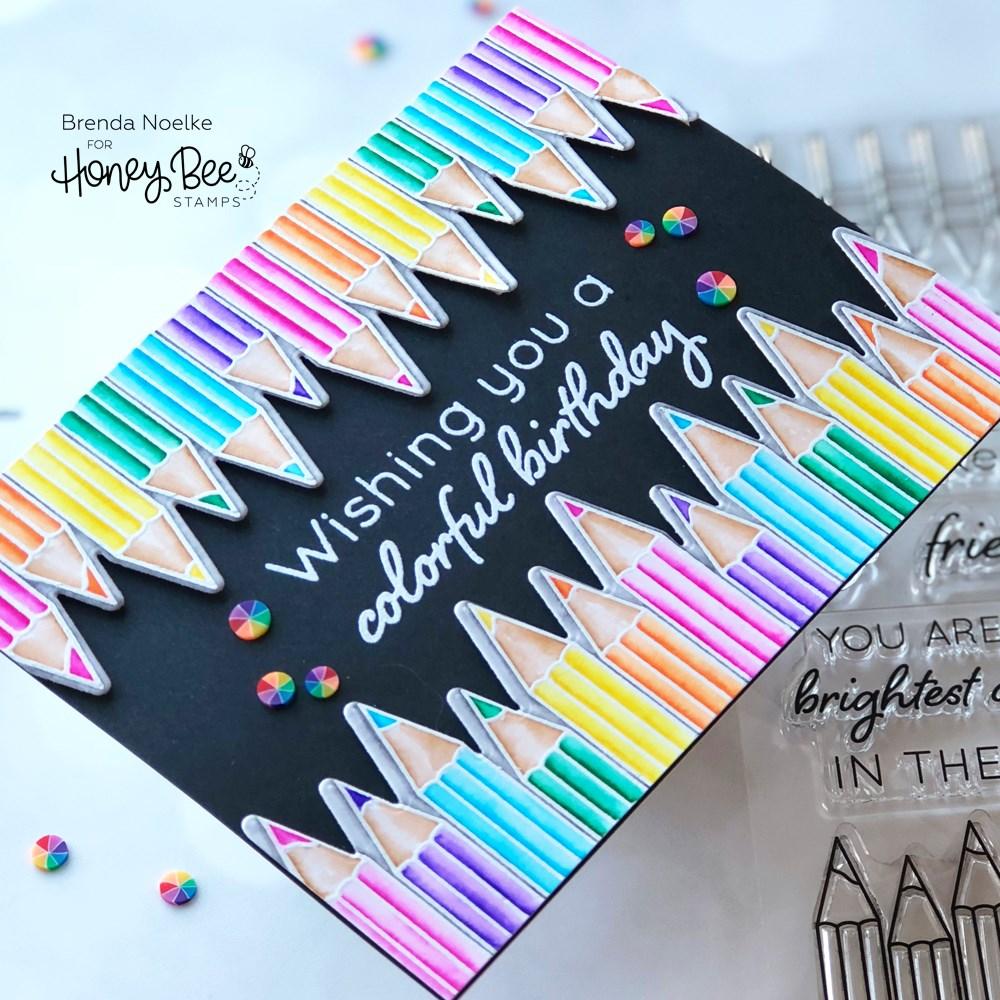 Brenda Noelke
FOR
Honey Bee
STAMPS
Wishing you a
colorful birthday
YOU ARE
brightest
IN THE